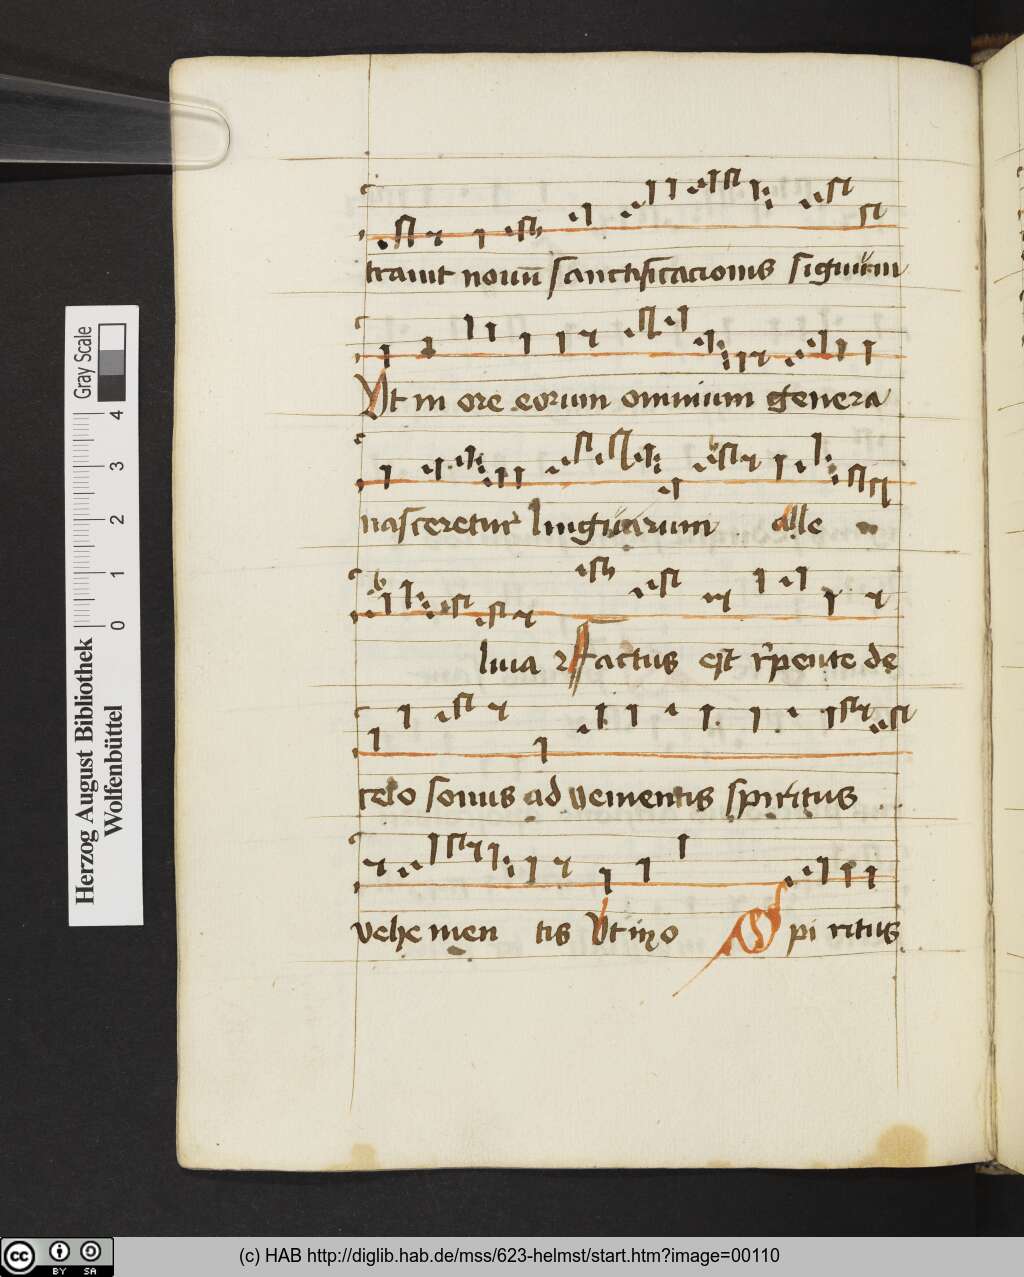 trauit nouū sanctificacionis signum
Vt in ore eorum omnium genera
nasceretur linguarum alle
luia Factus est repente de
celo sonus aduenientis spiritus
vehemen tis Vt in Spiritus
Gray Scale
0 1 2 3 4
Herzog August Bibliothek
Wolfenbüttel
cc BY SA
(c) HAB http://diglib.hab.de/mss/623-helmst/start.htm?image=00110